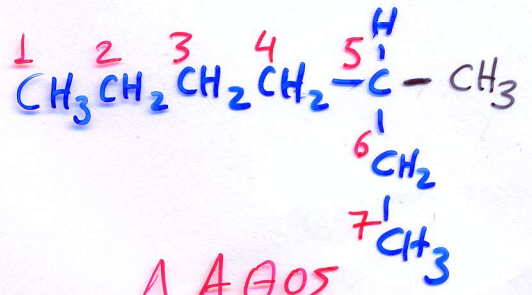 H
1 2 3 4 5
CH3CH2CH2CH2-C-CH3
6
CH2
7
CH3
ΛΑΘΟΣ